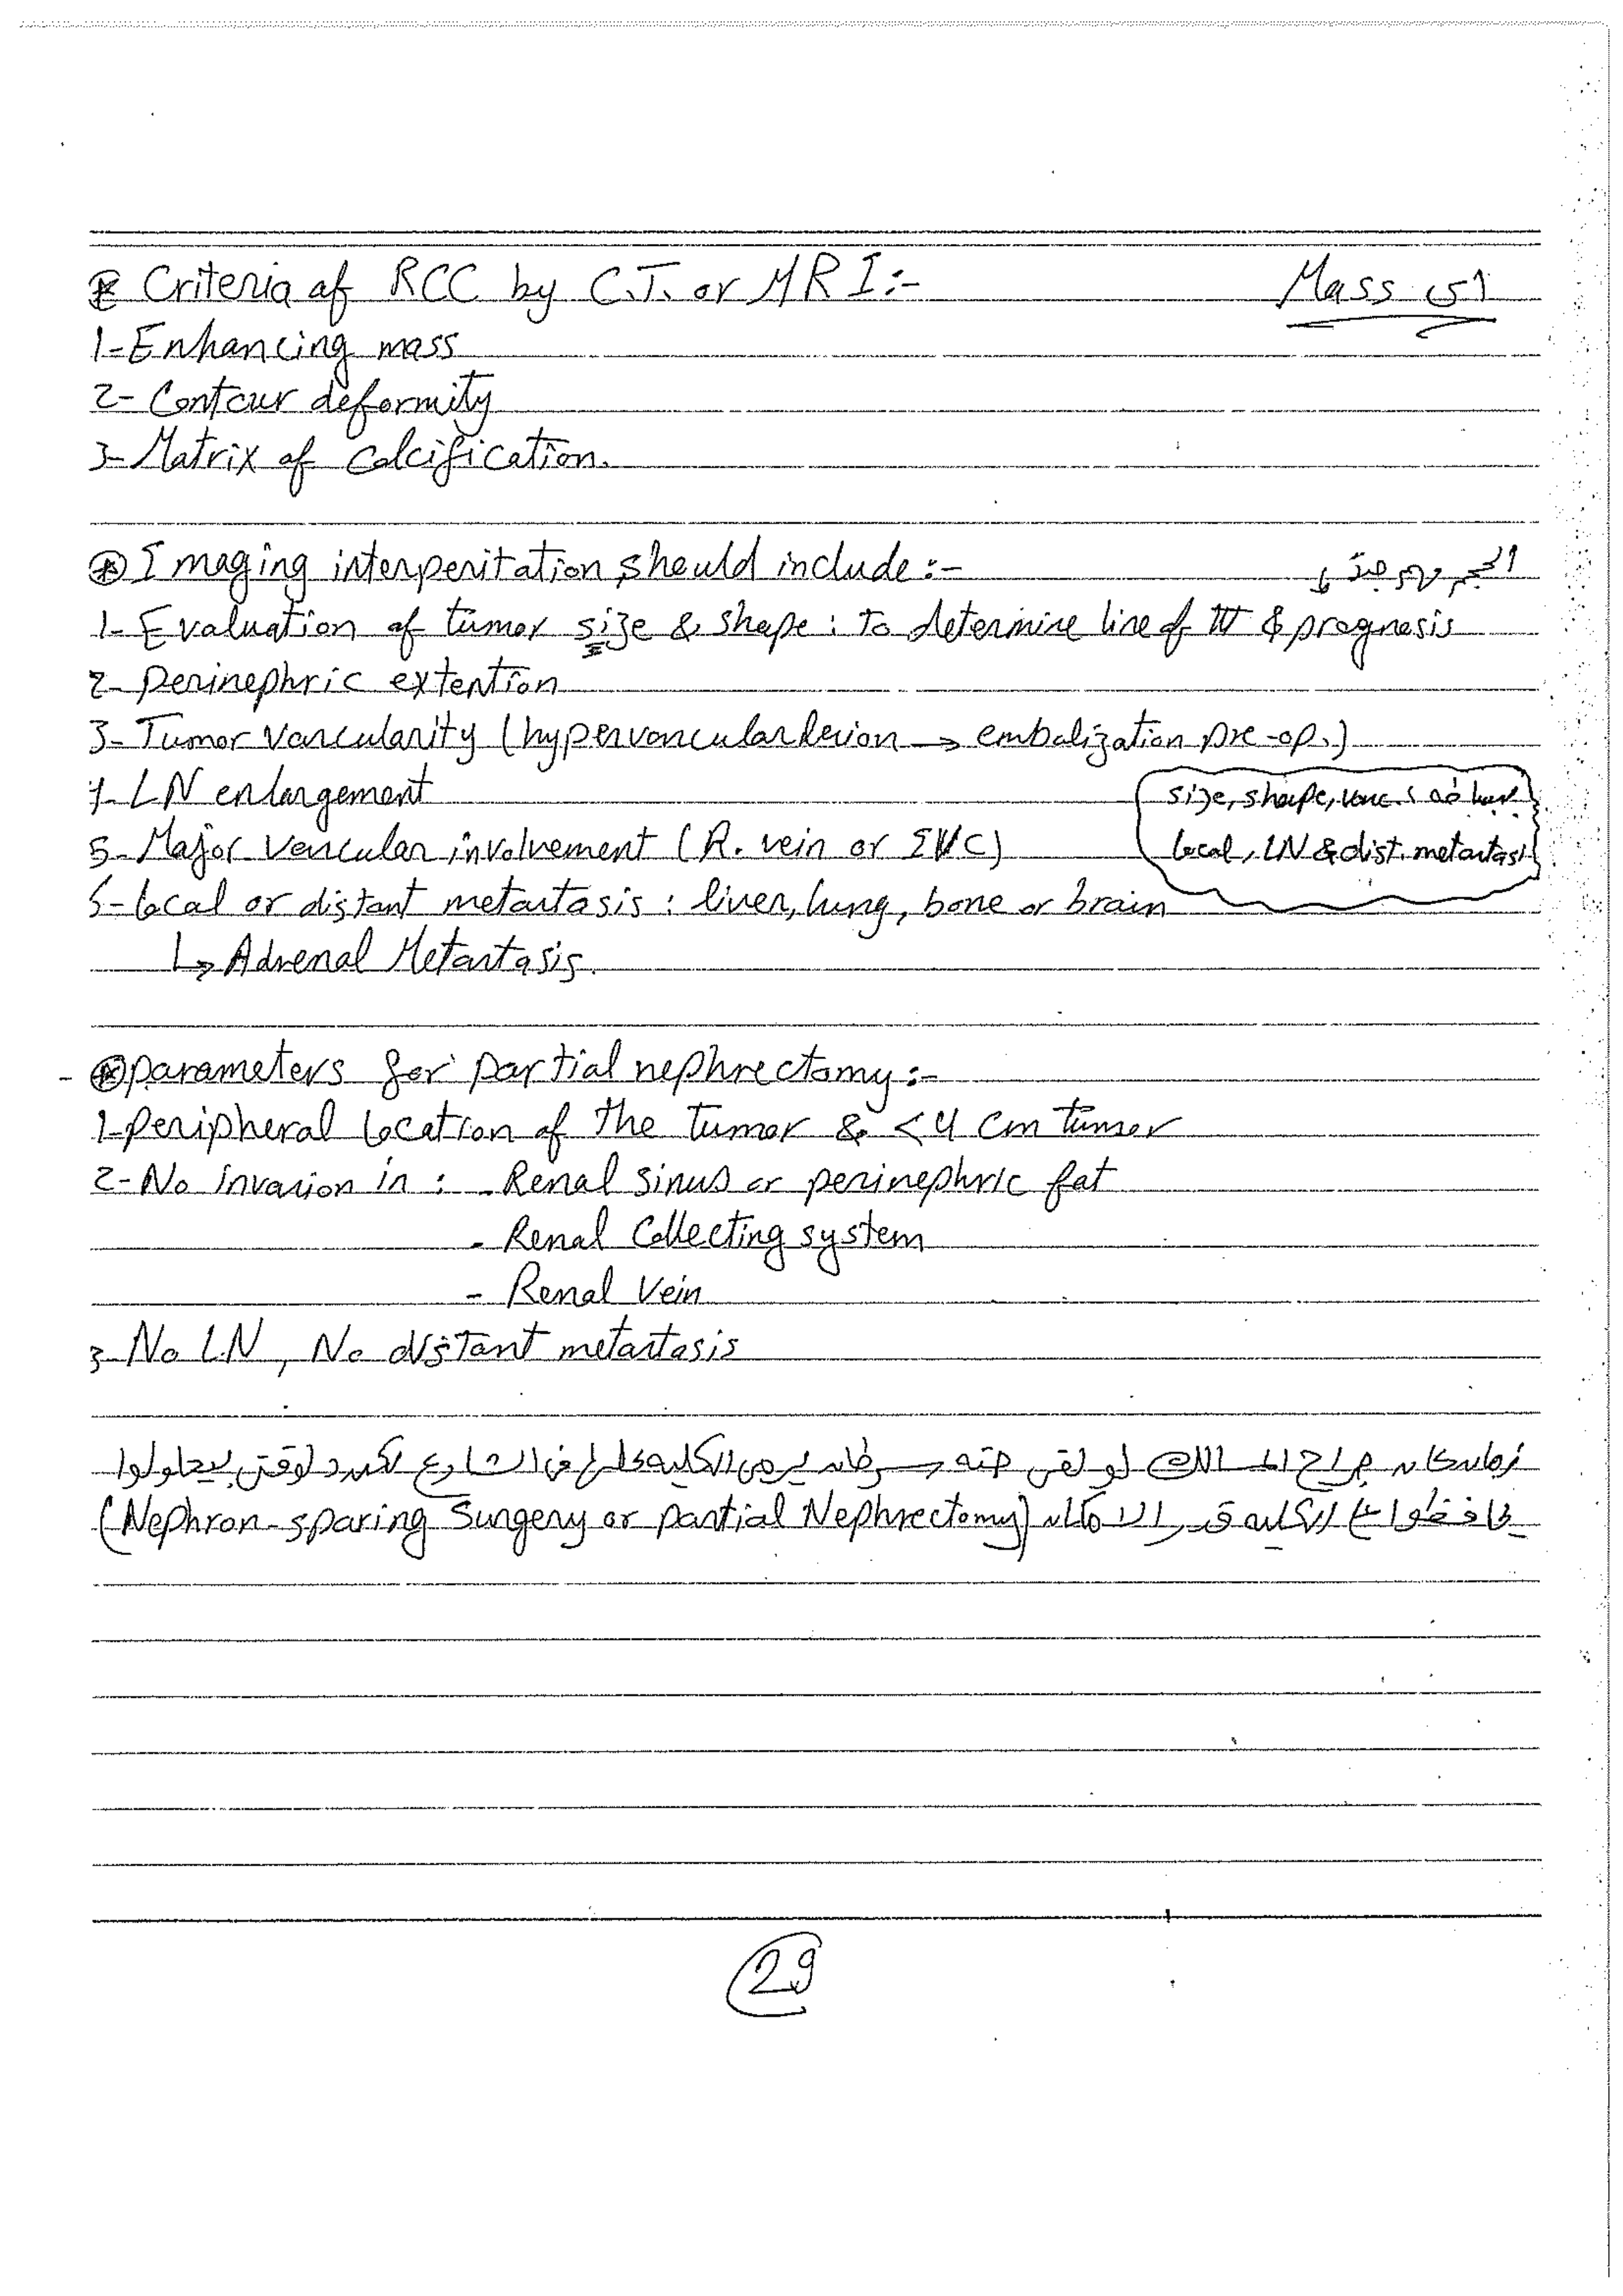 Criteria of RCC by C.T. or MRI:- Mass (5)
1- Enhancing mass
2- Contour deformity
3- Matrix of calcification.
Imaging interperitation should include:- الحجم
1- Evaluation of tumor size & shape: To determine line of ttt & prognosis
2- perinephric extention
3- Tumor vascularity (hypervascular lesion → embolization pre-op.)
4- LN enlargement
size, shape, vasc.
5- Major vascular involvement (R. vein or IVC)
local, LN & dist. metastasis
6- local or distant metastasis: liver, lung, bone or brain
↳ Adrenal Metastasis.
- parameters for partial nephrectomy:-
1- peripheral location of the tumor & < 4 cm tumor
2- No invasion in: - Renal sinus or perinephric fat
- Renal Collecting system
- Renal Vein
3- No LN, No distant metastasis
زمان كان جراح المسالك لو لقى حته سرطان يرمى الكلية كلها فى الشارع لكن دلوقتى بيحاولوا
يحافظوا ع الكلية قدر الامكان (Nephron-sparing Surgery or partial Nephrectomy)
29